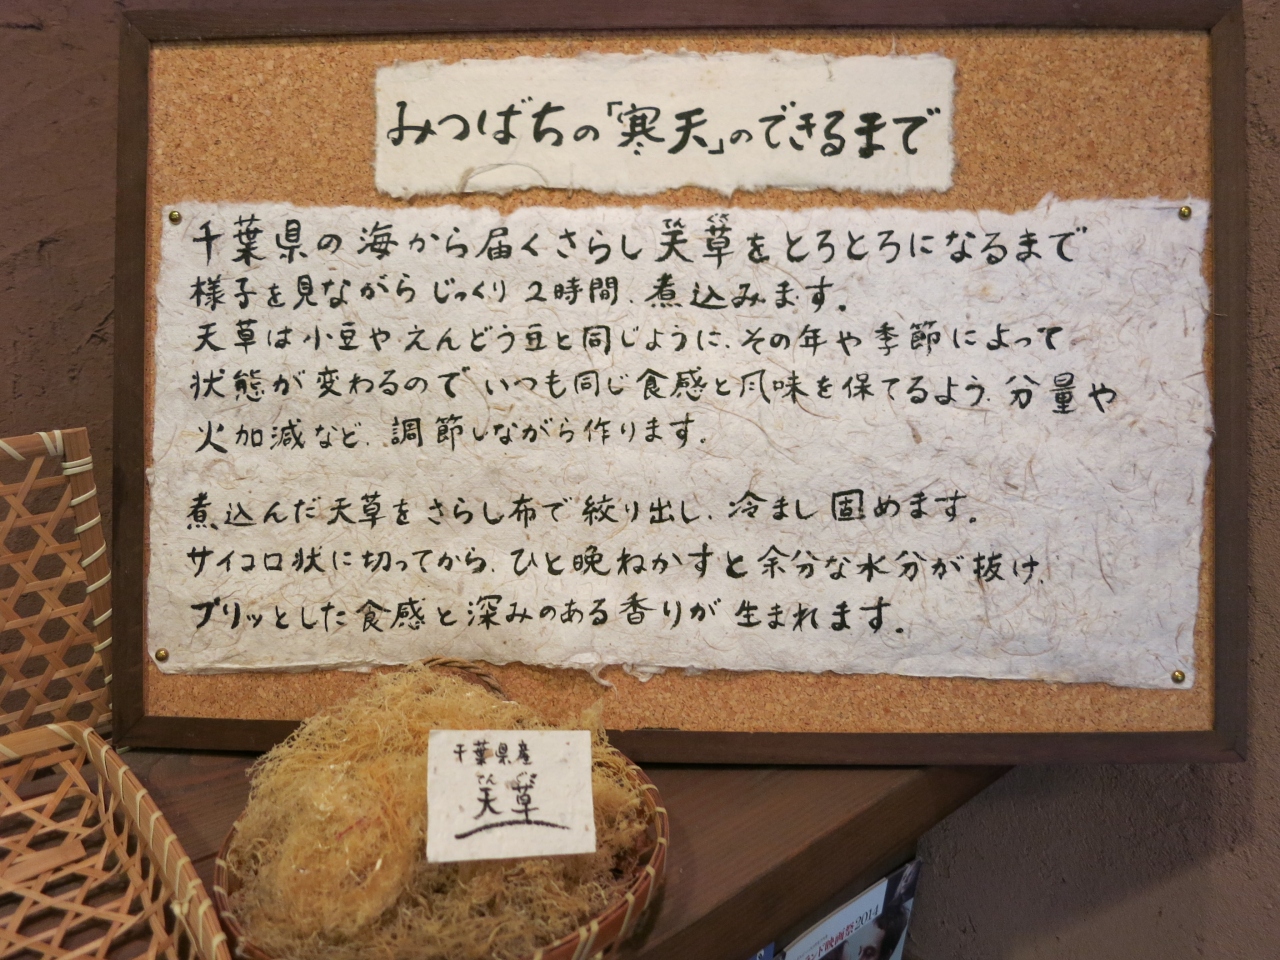 みつばちの「寒天」のできるまで
千葉県の海から届くさらし天草をとろとろになるまで
様子を見ながらじっくり2時間、煮込みます。
天草は小豆やえんどう豆と同じように、その年や季節によって
状態が変わるのでいつも同じ食感と風味を保てるよう、分量や
火加減など、調節しながら作ります。
煮込んだ天草をさらし布で絞り出し、冷まし固めます。
サイコロ状に切ってから、ひと晩ねかすと余分な水分が抜け、
プリッとした食感と深みのある香りが生まれます。
千葉県産
てんぐさ
天草
ンド映画祭2014